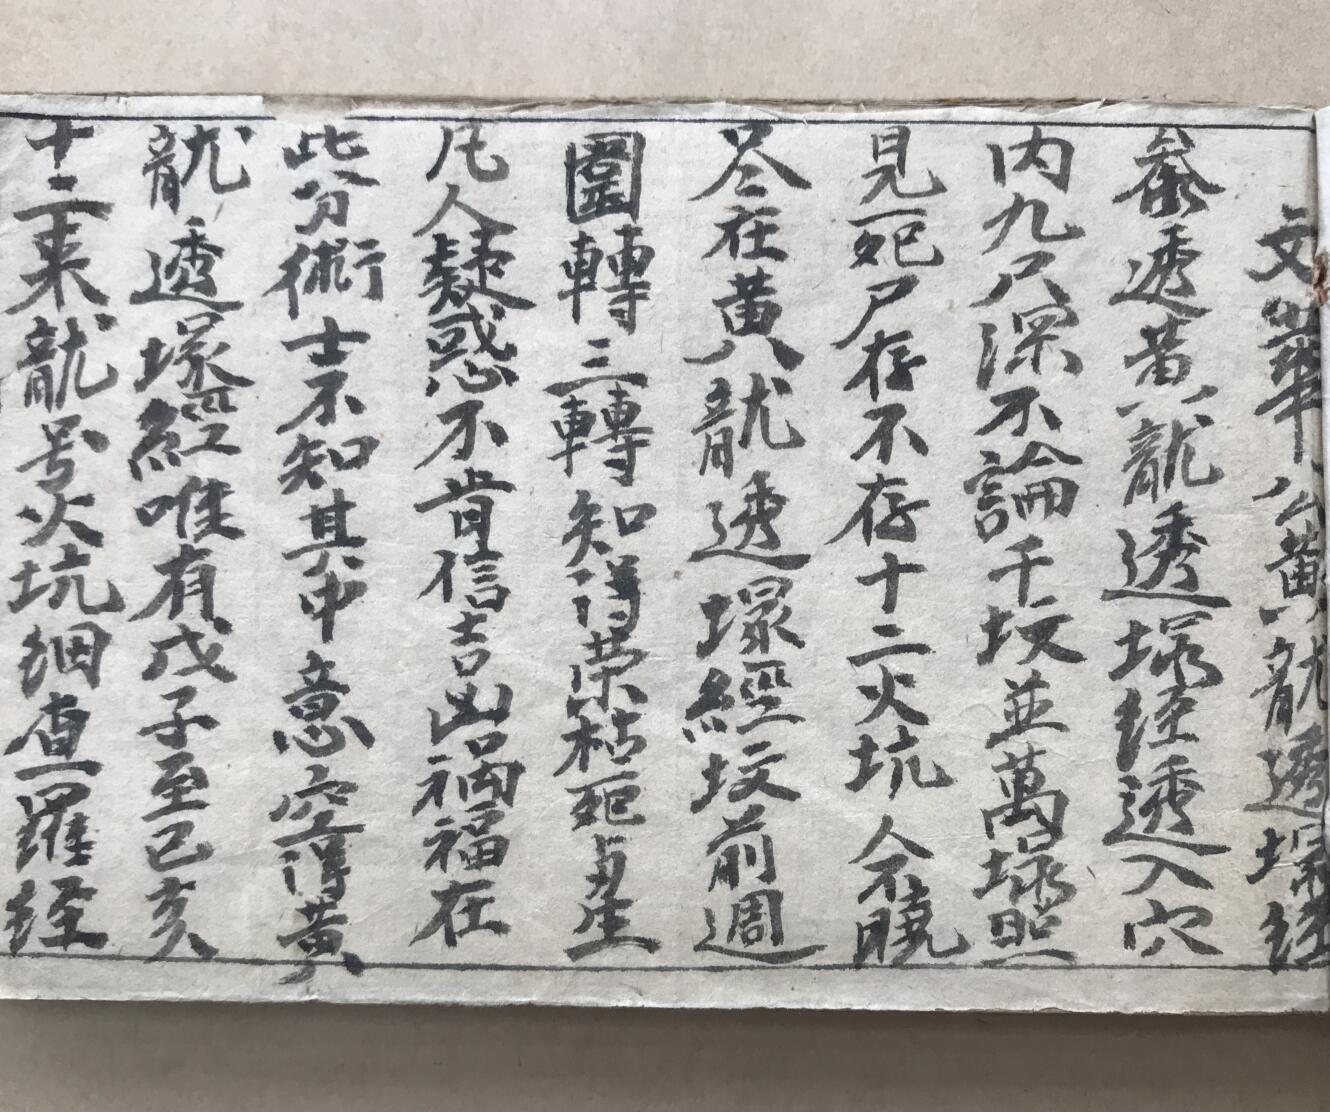 文華公黃龍透塚经
叅透黃龍透塚经透入穴
内九尺深不論千坟並萬塚照
見死尸存不存十二火坑人不曉
尽在黃龍透塚經坟前週
圍轉三轉知得荣枯死與生
凡人疑惑不肯信吉凶禍福在
此分術士不知其中意空得黃
龍透塚經唯有戊子至己亥
十二来龍号火坑细查羅经